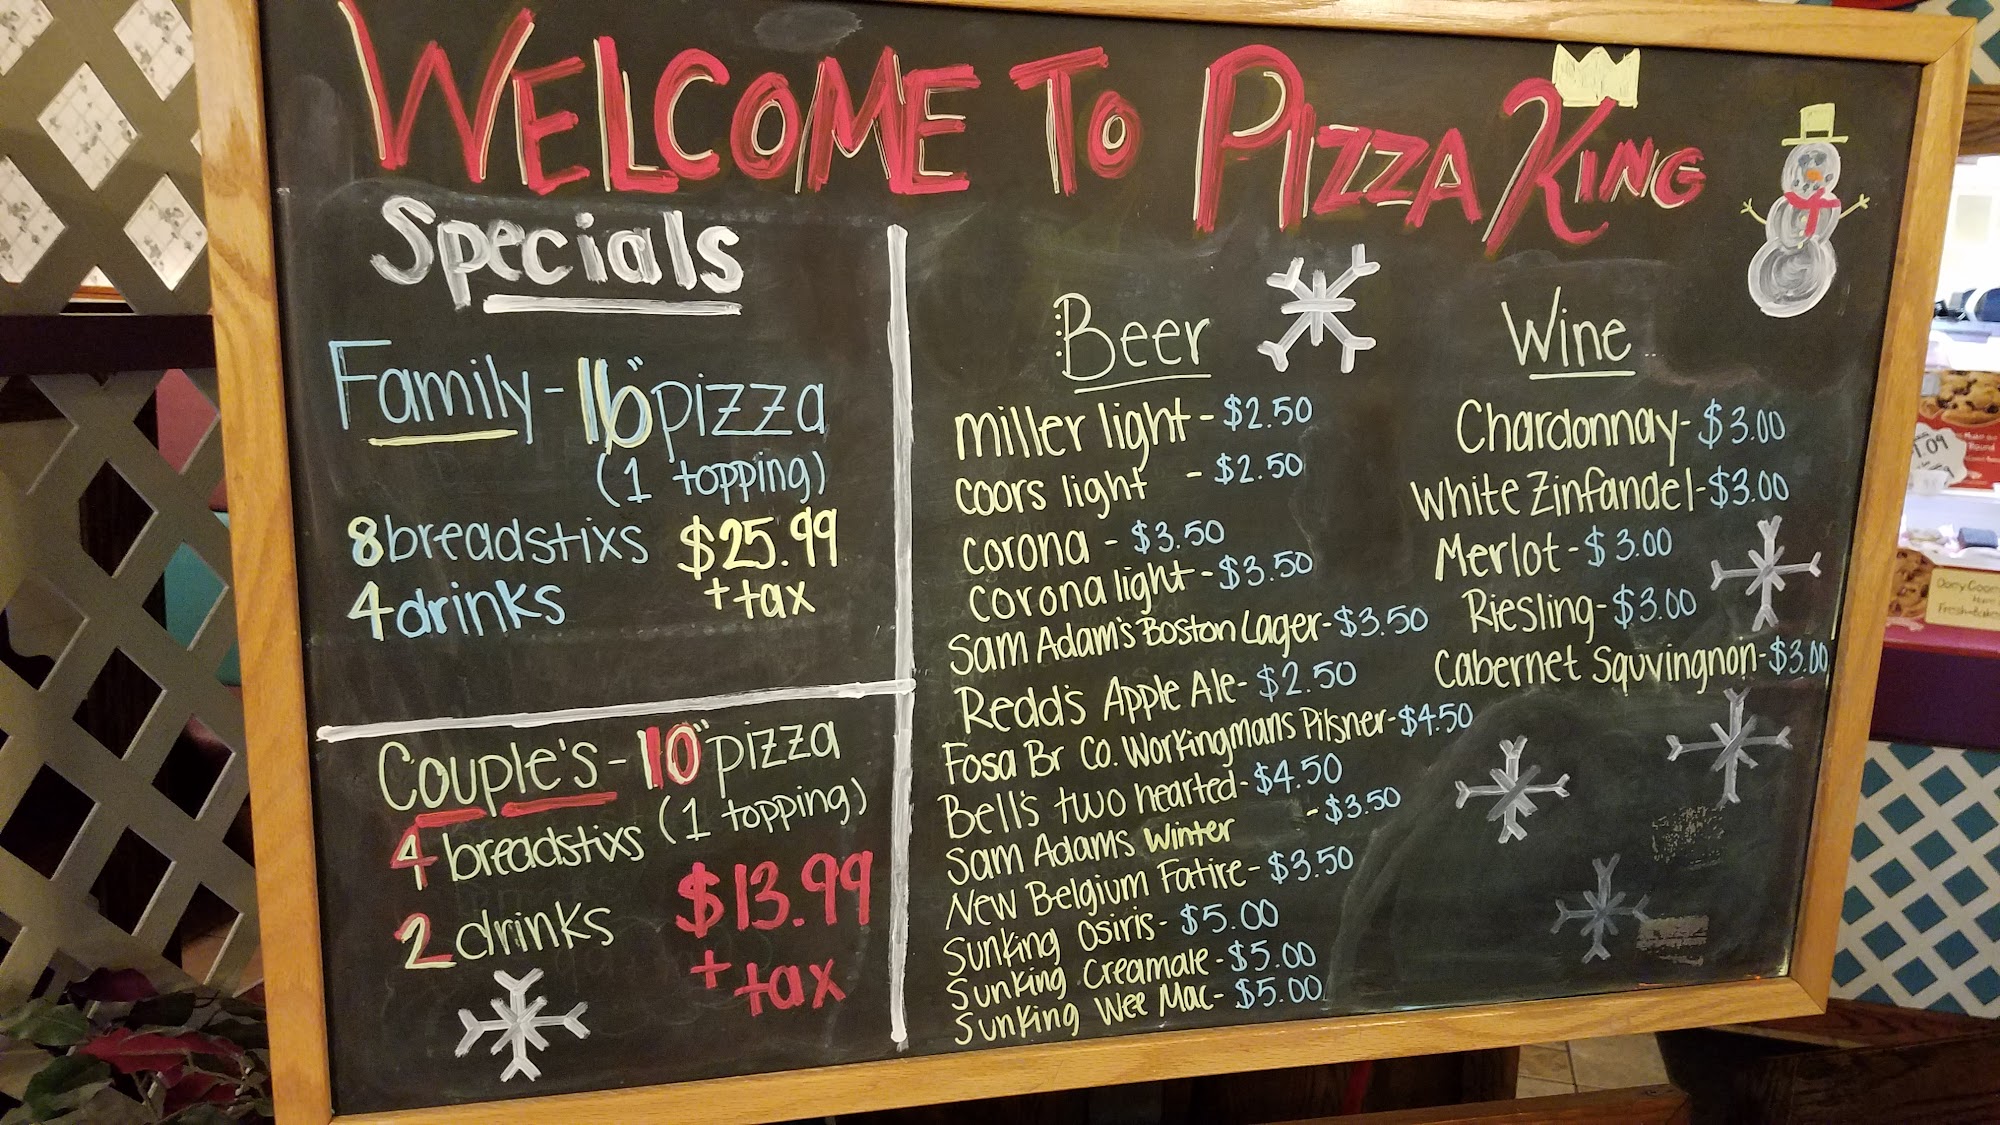 WELCOME TO PIZZA KING
Specials
Family - 16" pizza
(1 topping)
8 breadstixs
4 drinks
$25.99
+ tax
Couple's - 10" pizza
(1 topping)
4 breadstixs
2 drinks
$13.99
+ tax
Beer
miller light - $2.50
coors light - $2.50
corona - $3.50
corona light - $3.50
Sam Adam's Boston Lager - $3.50
Redd's Apple Ale - $2.50
Fosa Br Co. Workingmans Pilsner - $4.50
Bell's two hearted - $4.50
Sam Adams Winter - $3.50
New Belgium Fatire - $3.50
Sunking Osiris - $5.00
Sunking Creamale - $5.00
Sunking Wee Mac - $5.00
Wine
Chardonnay - $3.00
White Zinfandel - $3.00
Merlot - $3.00
Riesling - $3.00
Cabernet Squvingnon - $3.00